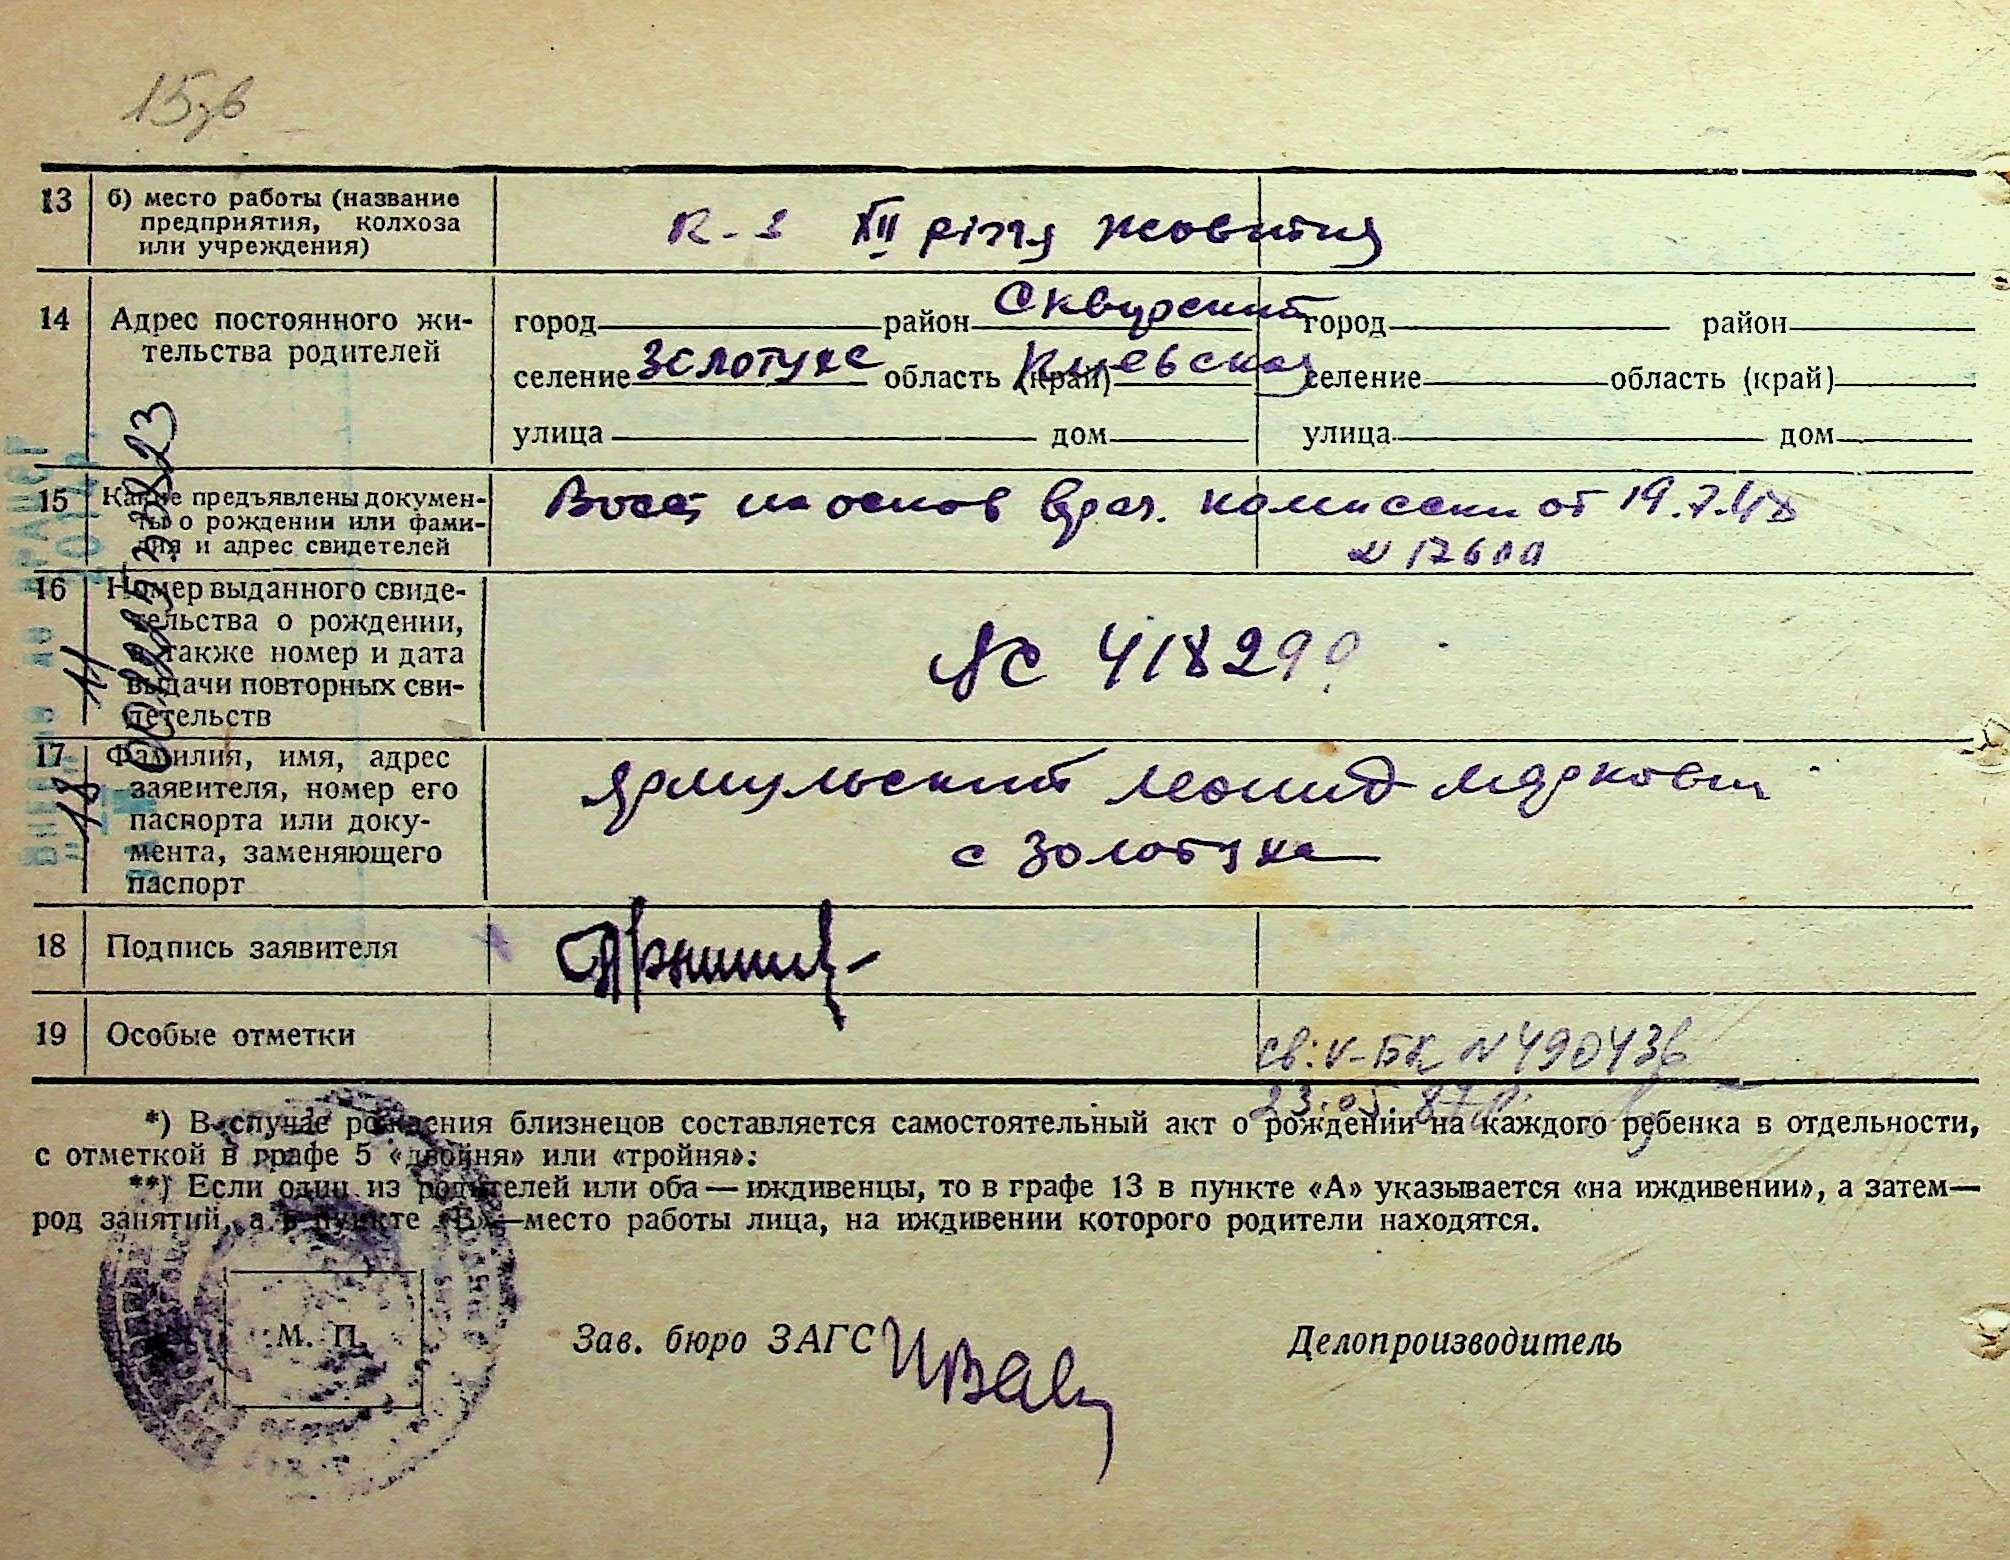 15зв
13 б) место работы (название
предприятия, колхоза
или учреждения)
к-з XII річчя жовтня
14 Адрес постоянного жи-
тельства родителей
город район Сквирский город район
селение Золотуха область (край) Киевская селение область (край)
улица дом улица дом
15 Какие предъявлены докумен-
ты о рождении или фами-
лия и адрес свидетелей
Восст на основ врач. комиссии от 19.7.48
16 Номер выданного свиде-
тельства о рождении,
а также номер и дата
выдачи повторных сви-
детельств
418290
17 Фамилия, имя, адрес
заявителя, номер его
паспорта или доку-
мента, заменяющего
паспорт
Ярмульский Леонид Маркович
с Золотуха
18 Подпись заявителя
19 Особые отметки
св: V-БК N 490436
23.05.87
*) В случае рождения близнецов составляется самостоятельный акт о рождении на каждого ребенка в отдельности,
с отметкой в графе 5 «двойня» или «тройня»:
**) Если один из родителей или оба — иждивенцы, то в графе 13 в пункте «А» указывается «на иждивении», а затем—
род занятий, а в пункте «Б»—место работы лица, на иждивении которого родители находятся.
М. П.
Зав. бюро ЗАГС Делопроизводитель